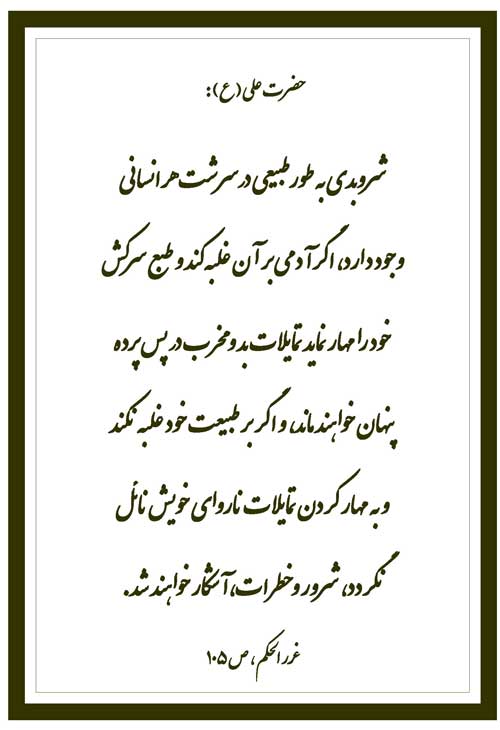 حضرت علی (ع):
شر و بدی به طور طبیعی در سرشت هر انسانی
وجود دارد، اگر آدمی بر آن غلبه کند و طبع سرکش
خود را مهار نماید تمایلات بد و مخرب در پس پرده
پنهان خواهند ماند، و اگر بر طبیعت خود غلبه نکند
و به مهار کردن تمایلات ناروای خویش نائل
نگردد، شرور و خطرات، آشکار خواهند شد.
غرر الحکم، ص ۱۰۵